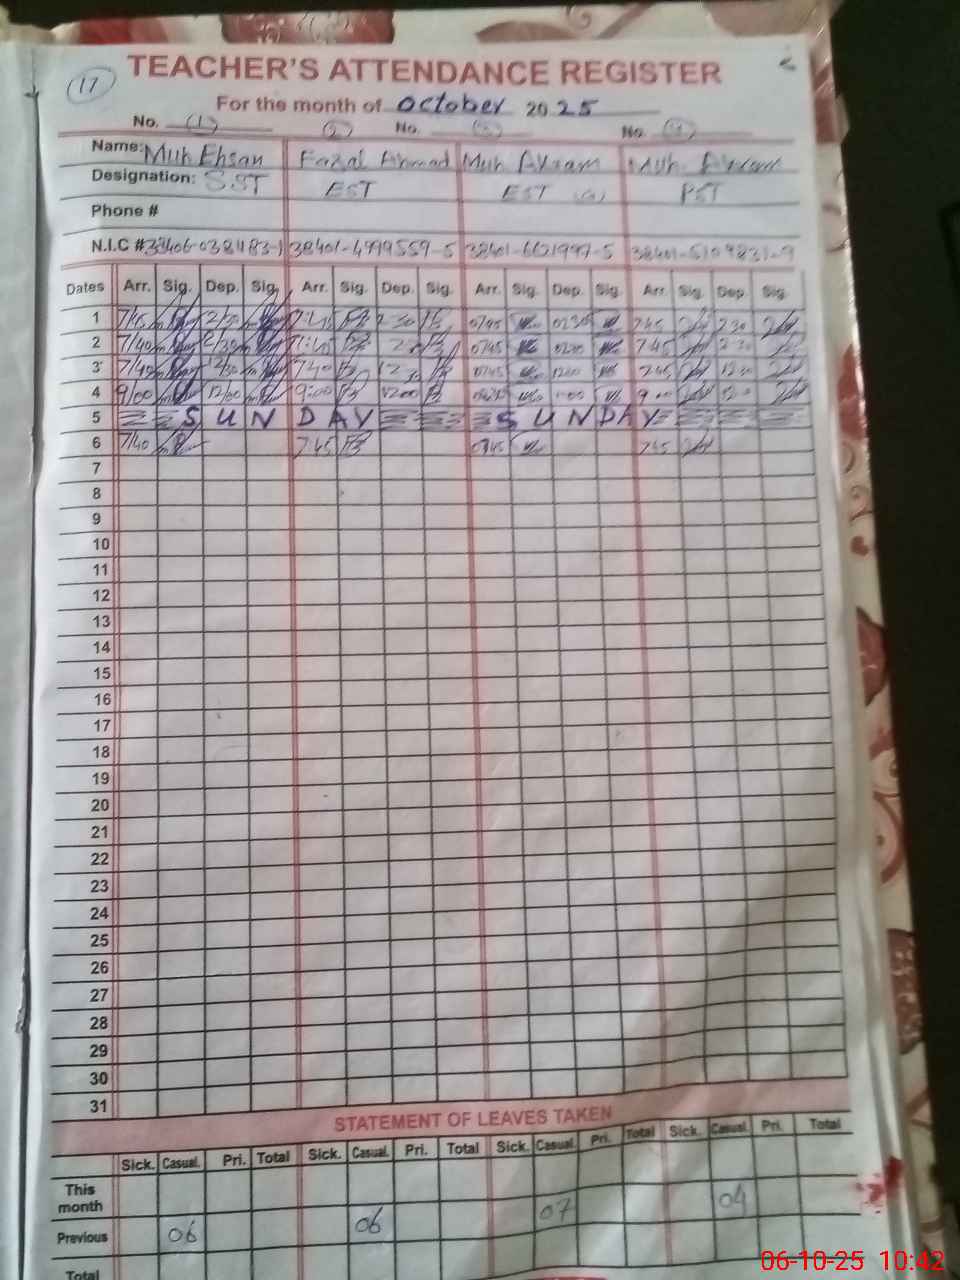 17
TEACHER'S ATTENDANCE REGISTER
For the month of October 2025
No. (1) (2) No. (3) No. (4)
Name: Muh Ehsan Fazal Ahmad Muh Akram Muh. Akram
Designation: SST EST EST PST
Phone #
N.I.C # 38401-4999559-5 38401-6621997-5
Dates Arr. Sig. Dep. Sig. Arr. Sig. Dep. Sig. Arr. Sig. Dep. Sig. Arr. Sig. Dep. Sig.
1 7/45 2/30 2 30 0745 0230 7 45 2 30
2 7/40 2/30 0745 7 45
3 7/40 12/30 7 40 0745 1200 7 45
4 9/00 12/00 9:00 1200 9 00
5 SUNDAY SUNDAY
6 7/40 7 45 0745 7 45
7
8
9
10
11
12
13
14
15
16
17
18
19
20
21
22
23
24
25
26
27
28
29
30
31
STATEMENT OF LEAVES TAKEN
Sick. Casual. Pri. Total Sick. Casual. Pri. Total Sick. Casual. Pri. Total Sick. Casual. Pri. Total
This month
Previous 06 06 07 04
Total
06-10-25 10:42